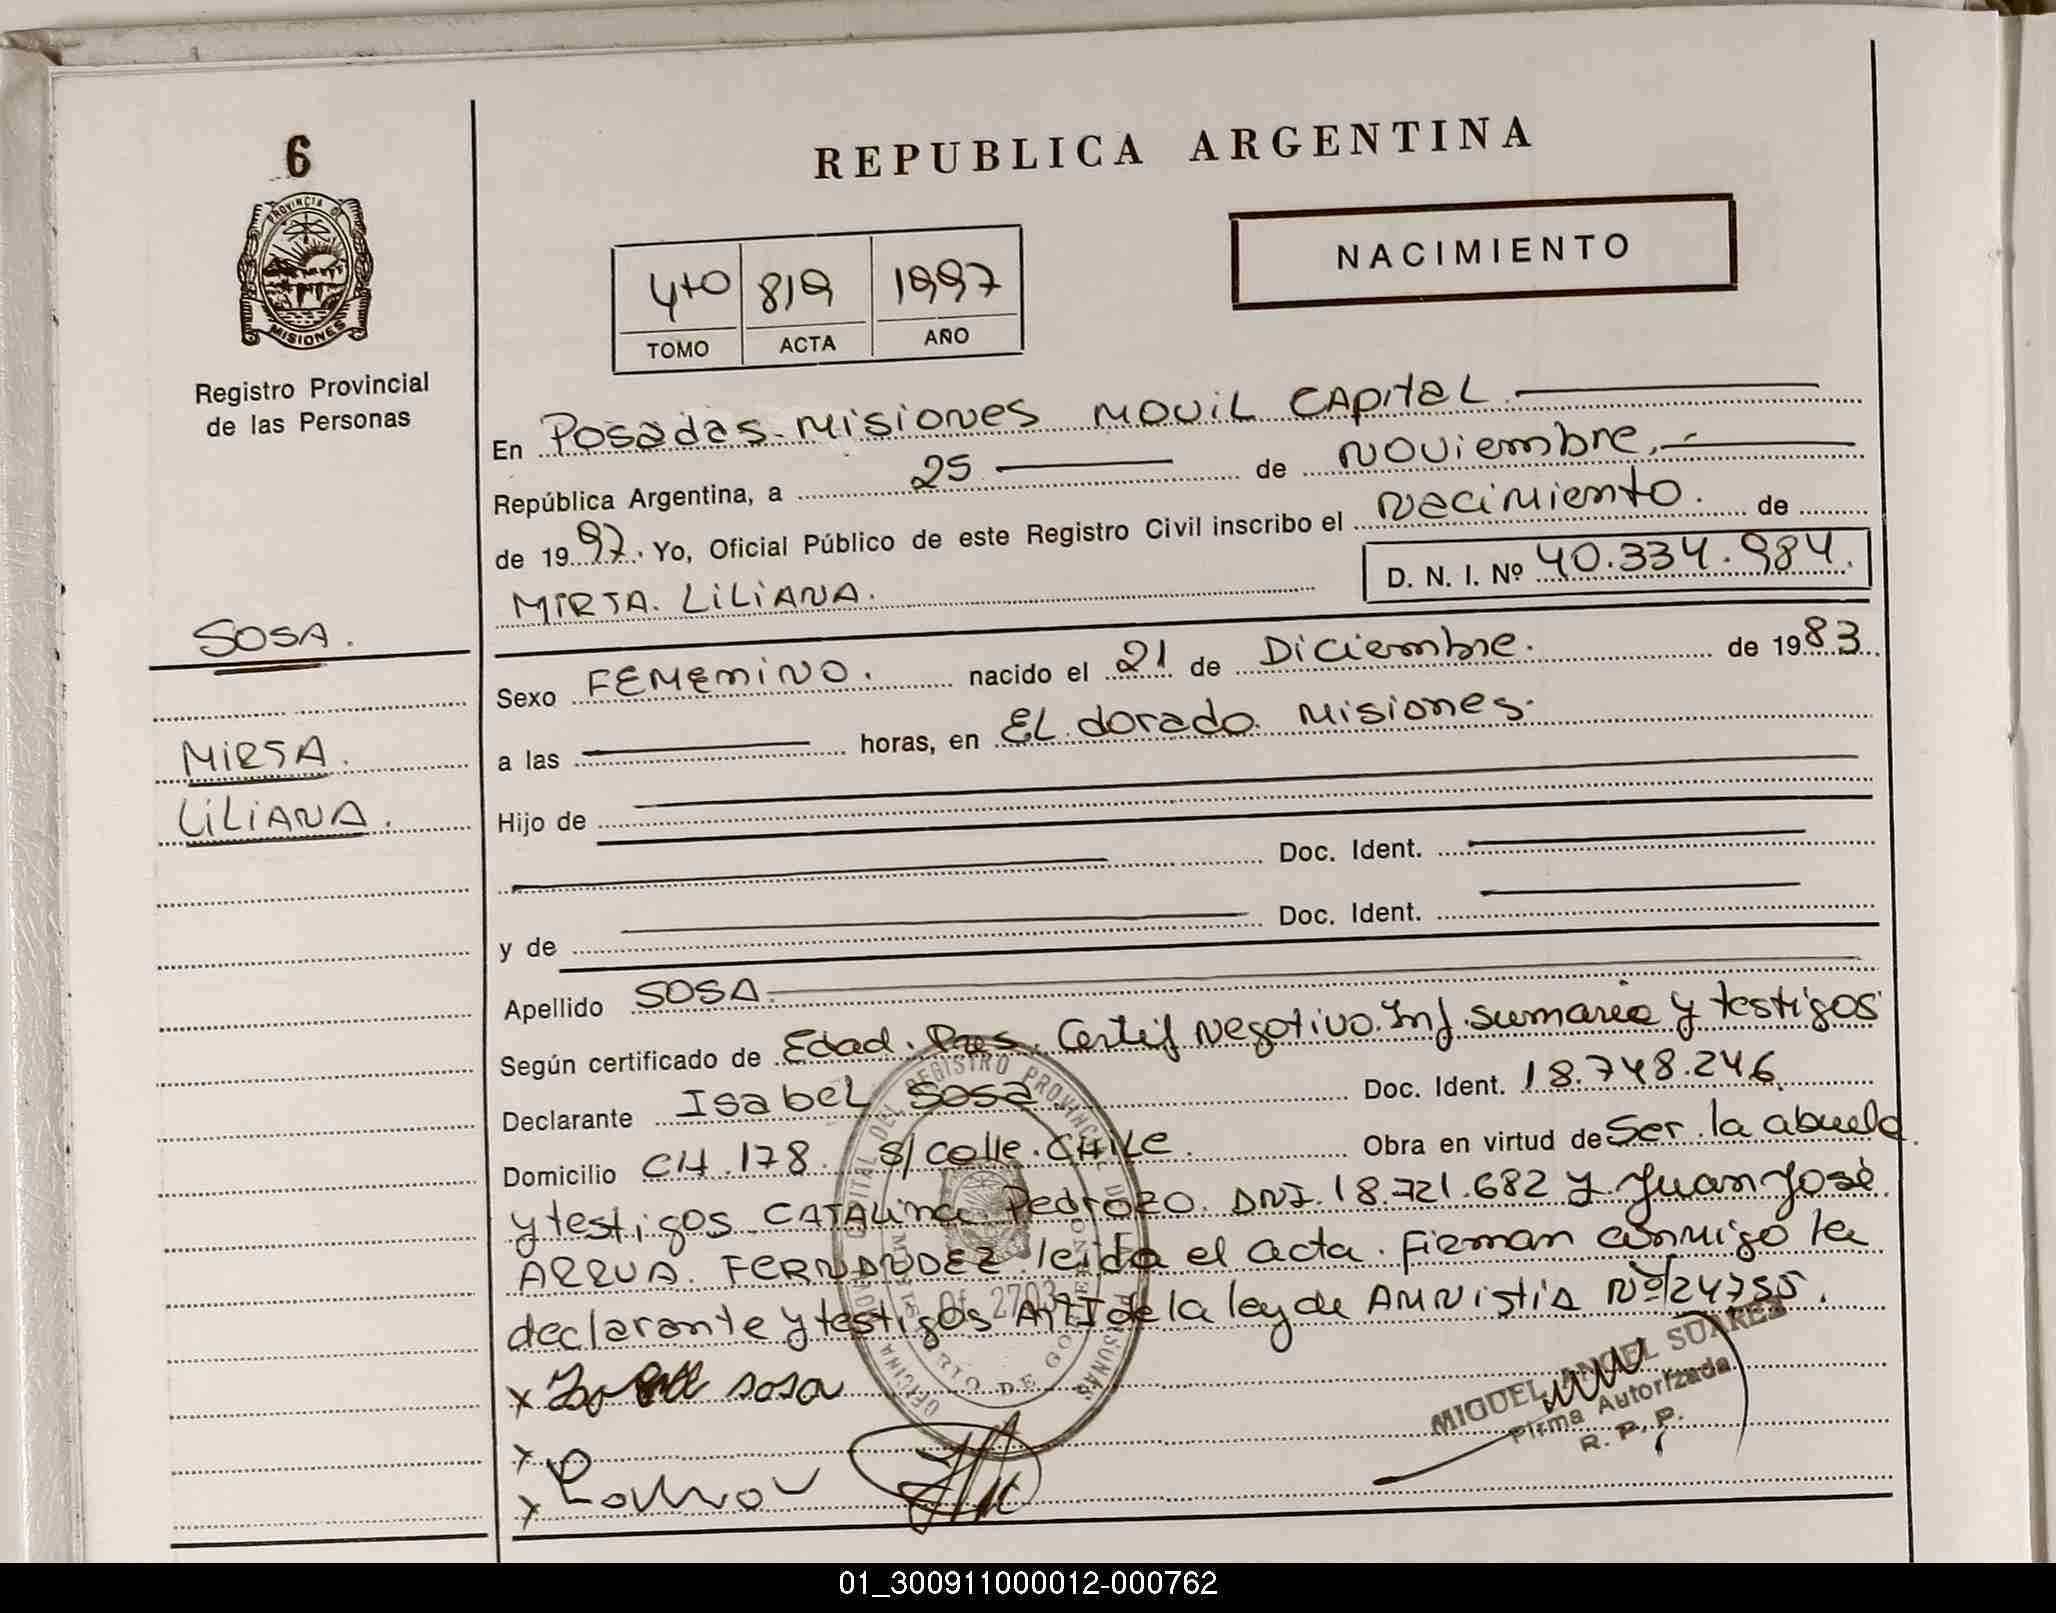 6
REPUBLICA ARGENTINA
PROVINCIA DE
MISIONES
Registro Provincial
de las Personas
NACIMIENTO
4to 819 1997
TOMO ACTA AÑO
En Posadas. Misiones Movil Capital
República Argentina, a 25 de Noviembre.
de 1997. Yo, Oficial Público de este Registro Civil inscribo el Nacimiento. de
MIRTA. LILIANA. D. N. I. Nº 40.334.984.
SOSA.
Sexo FEMENINO. nacido el 21 de Diciembre. de 1983.
MIRTA.
a las horas, en EL dorado. Misiones.
LILIANA.
Hijo de
Doc. Ident.
y de Doc. Ident.
Apellido SOSA
Según certificado de Edad. Pres. Certif Negativo. Inf. sumaria y testigos
Declarante Isabel Sosa. Doc. Ident. 18.748.246.
Domicilio CH. 178. s/ calle. CHILE. Obra en virtud de Ser. la abuela.
y testigos CATALINA Pedrozo. DNI. 18.721.682 y Juan José
ARRUA. FERNANDEZ leida el acta. Firman conmigo la
declarante y testigos Art I de la ley de AMNistiA Nº 24755.
x sosa
MIGUEL ANGEL SUAREZ
Firma Autorizada
R. P. P.
x
x
01_300911000012-000762